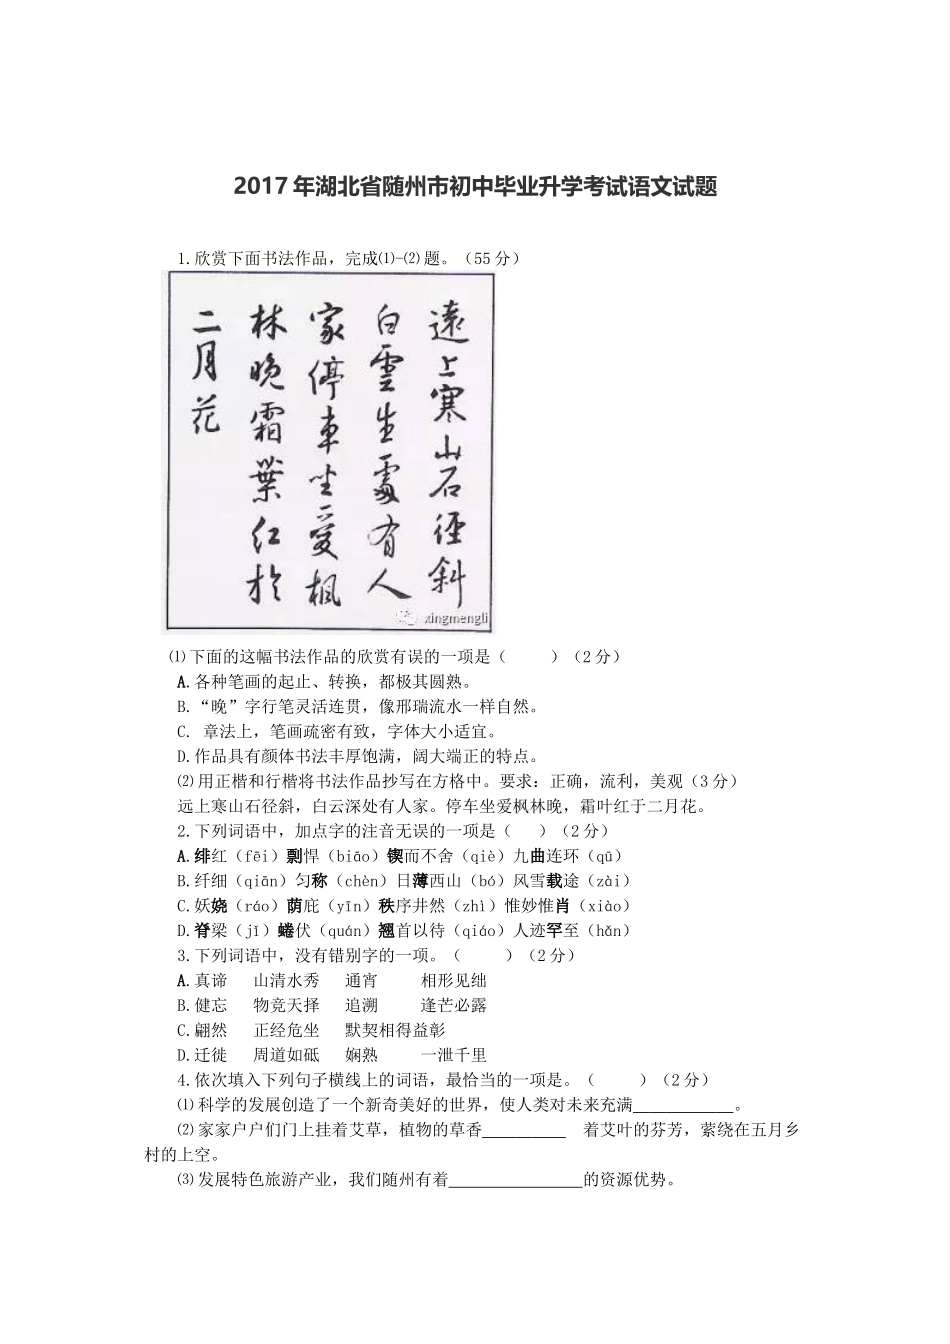 2017年湖北省随州市初中毕业升学考试语文试题
1.欣赏下面书法作品，完成⑴-⑵题。（55分）
遠上寒山石徑斜
白雲生處有人
家停車坐愛楓
林晚霜葉紅於
二月花
xingmengli
⑴下面的这幅书法作品的欣赏有误的一项是（　　）（2分）
A.各种笔画的起止、转换，都极其圆熟。
B.“晚”字行笔灵活连贯，像邢瑞流水一样自然。
C. 章法上，笔画疏密有致，字体大小适宜。
D.作品具有颜体书法丰厚饱满，阔大端正的特点。
⑵用正楷和行楷将书法作品抄写在方格中。要求：正确，流利，美观（3分）
远上寒山石径斜，白云深处有人家。停车坐爱枫林晚，霜叶红于二月花。
2.下列词语中，加点字的注音无误的一项是（　）（2分）
A.绯红（fēi）剽悍（biāo）锲而不舍（qiè）九曲连环（qū）
B.纤细（qiān）匀称（chèn）日薄西山（bó）风雪载途（zài）
C.妖娆（ráo）荫庇（yīn）秩序井然（zhì）惟妙惟肖（xiào）
D.脊梁（jǐ）蜷伏（quán）翘首以待（qiáo）人迹罕至（hǎn）
3.下列词语中，没有错别字的一项。（　　）（2分）
A.真谛　山清水秀　通宵　相形见绌
B.健忘　物竞天择　追溯　逢芒必露
C.翩然　正经危坐　默契相得益彰
D.迁徙　周道如砥　娴熟　一泄千里
4.依次填入下列句子横线上的词语，最恰当的一项是。（　　）（2分）
⑴科学的发展创造了一个新奇美好的世界，使人类对未来充满____________。
⑵家家户户们门上挂着艾草，植物的草香__________　着艾叶的芬芳，萦绕在五月乡
村的上空。
⑶发展特色旅游产业，我们随州有着________________的资源优势。